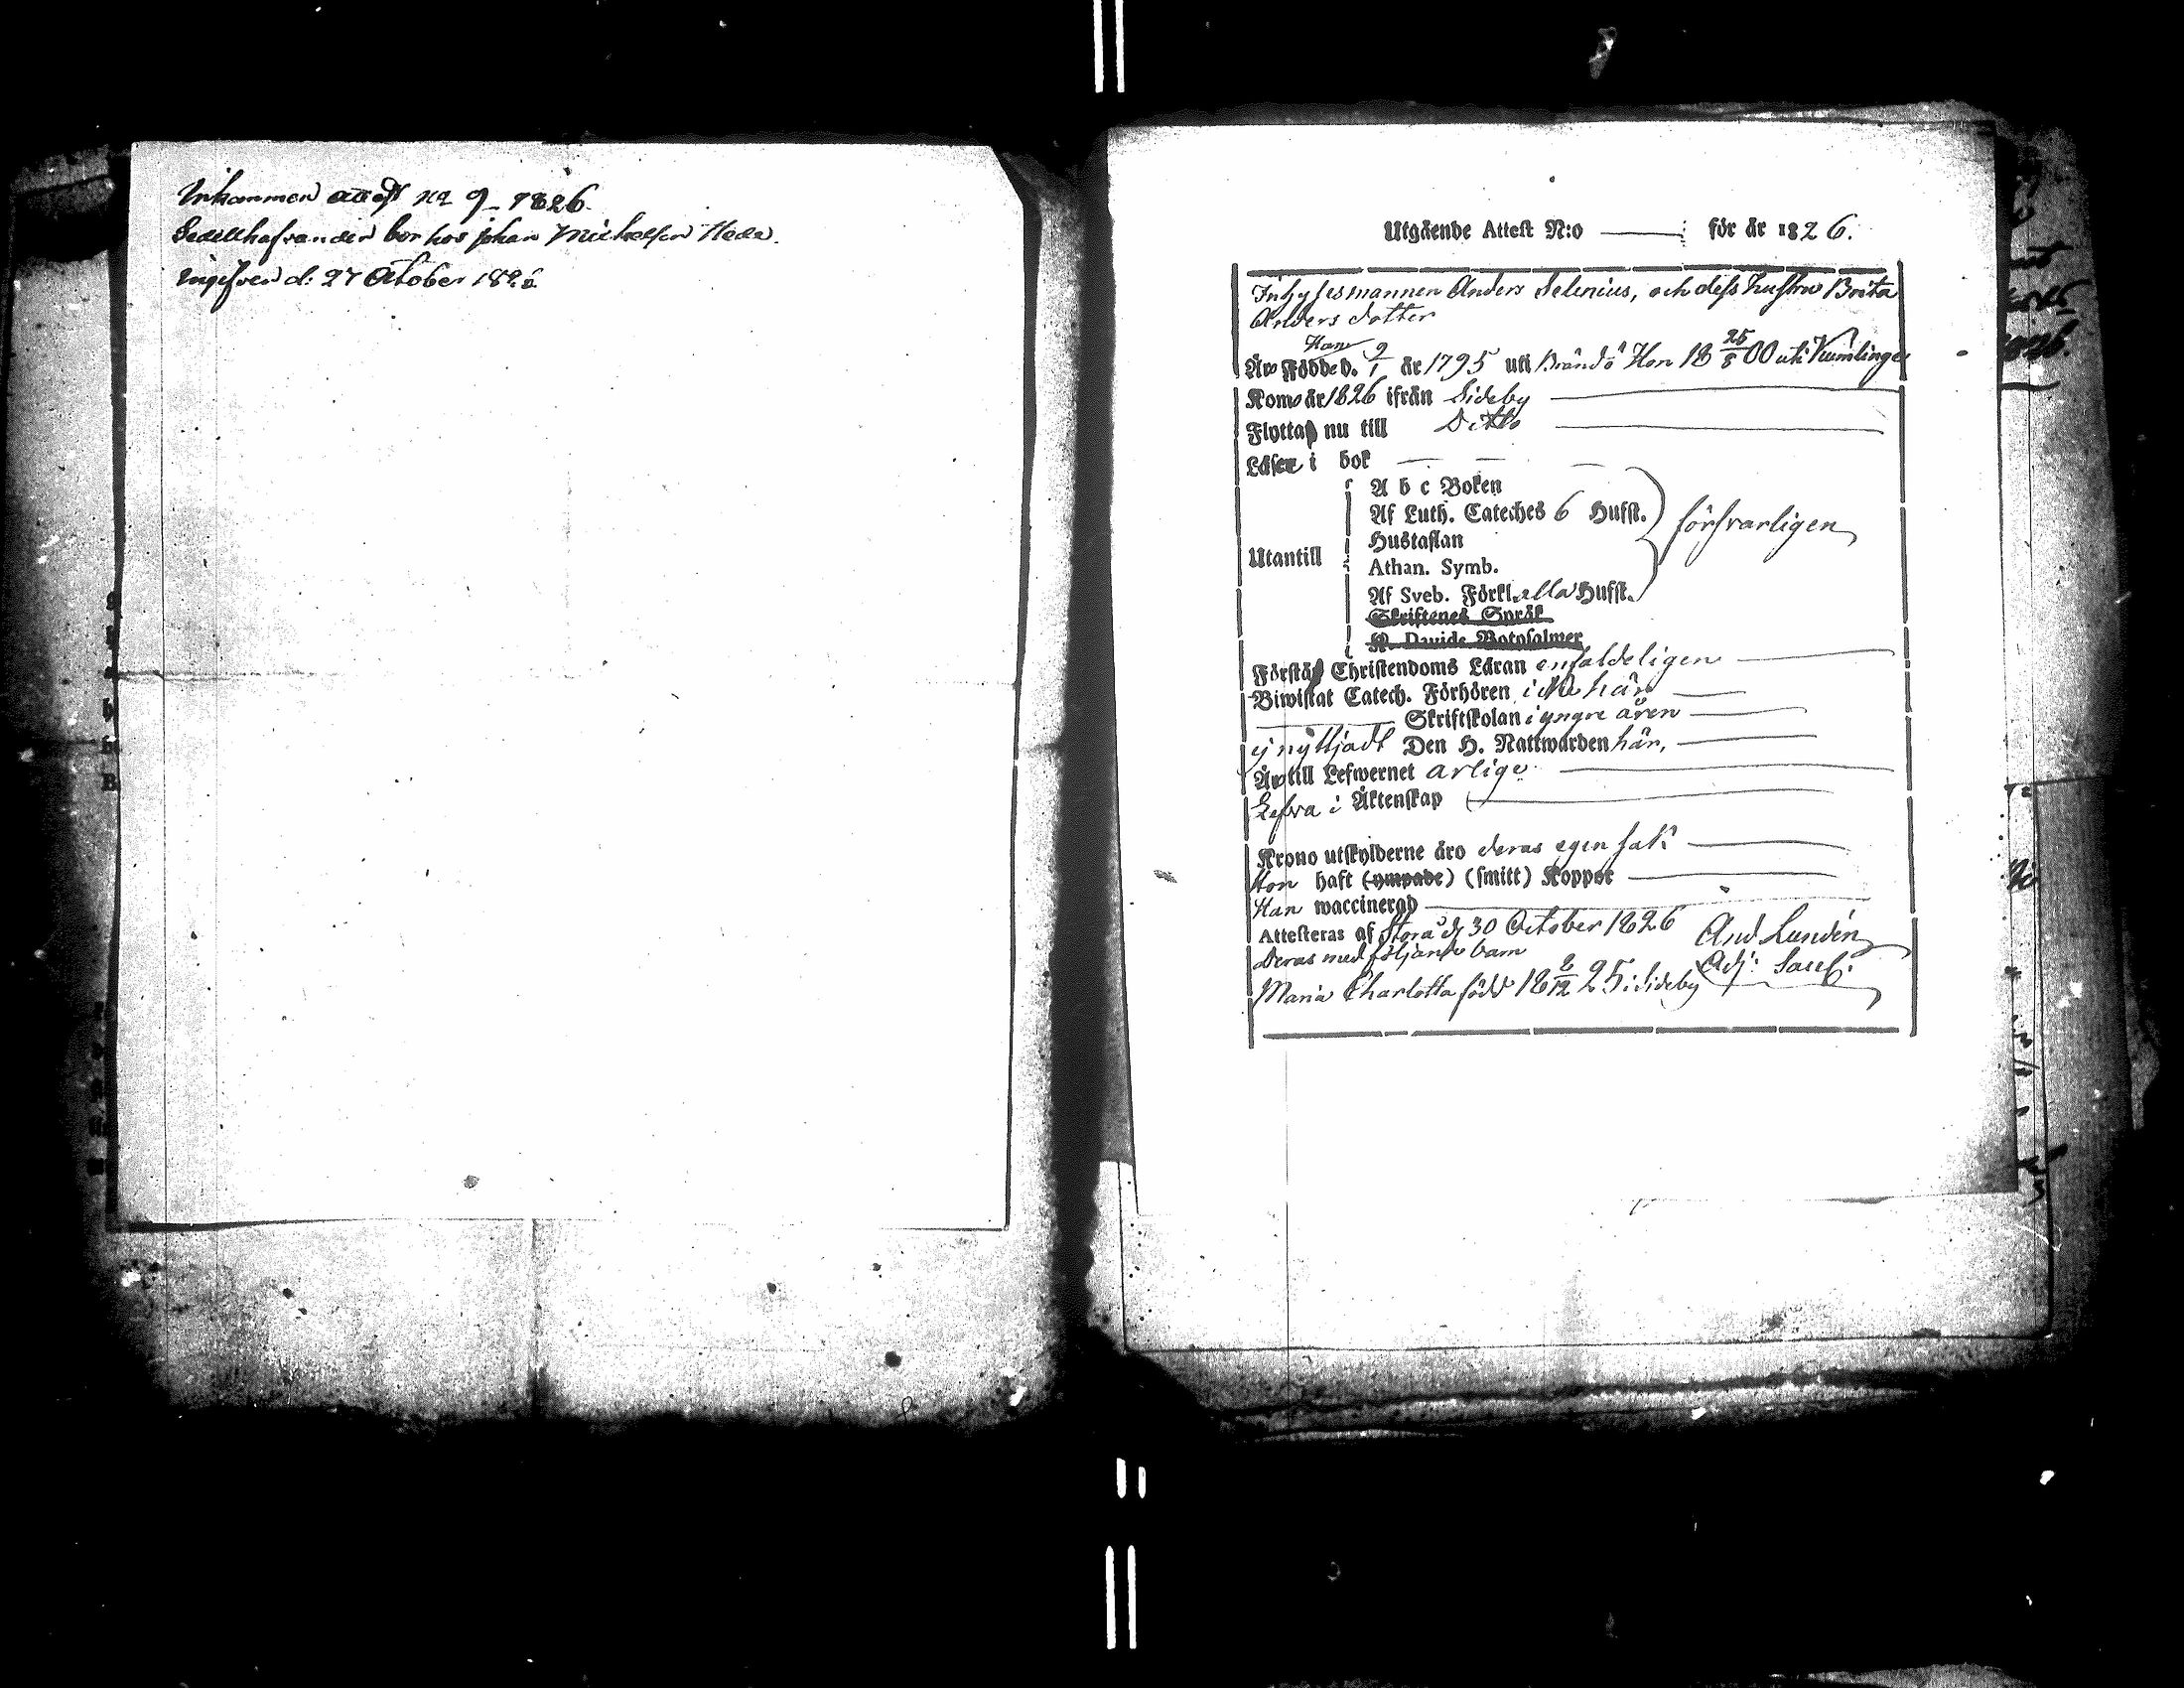 Inkommen attest no 9 - 1826.
Sedelhafvanden bor hos johan Michelsson Hede.
Ingifven d: 27 October 1826
Utgående Attest N:o — för år 1826.
Inhysesmannen Anders Selenius, och dess hustru Brita
Anders dotter
Han
Äro Födde d. 9/1 år 1795 uti Brändö Hon 18 25/8 00 uti Kumlinge
Komo år 1826 ifrån Sideby
Flytta nu till Ditto
Läser i bok
A b c Boken
Af Luth. Cateches 6 Hufst.
försvarligen
Hustaflan
Utantill
Athan. Symb.
Af Sveb. Förkl. alla Hufst.
Skriftenes Språk
K. Davids Botpsalmer
Förstå Christendoms Läran enfaldeligen
Biwistat Catech. Förhören icke här
Skriftskolan i yngre åren
ej nyttjadt Den H. Nattwarden här,
Äro till Lefwernet ärlige
Lefva i Äktenskap
Krono utskylderne äro deras egen sak
Hon haft (ympade) (smitt) Koppor
Han waccinerad
Attesteras af Storå d. 30 October 1826
And Lundén
Deras medföljande barn
Adj: Sacell:
Maria Charlotta född 18 2/12 25 i Sideby